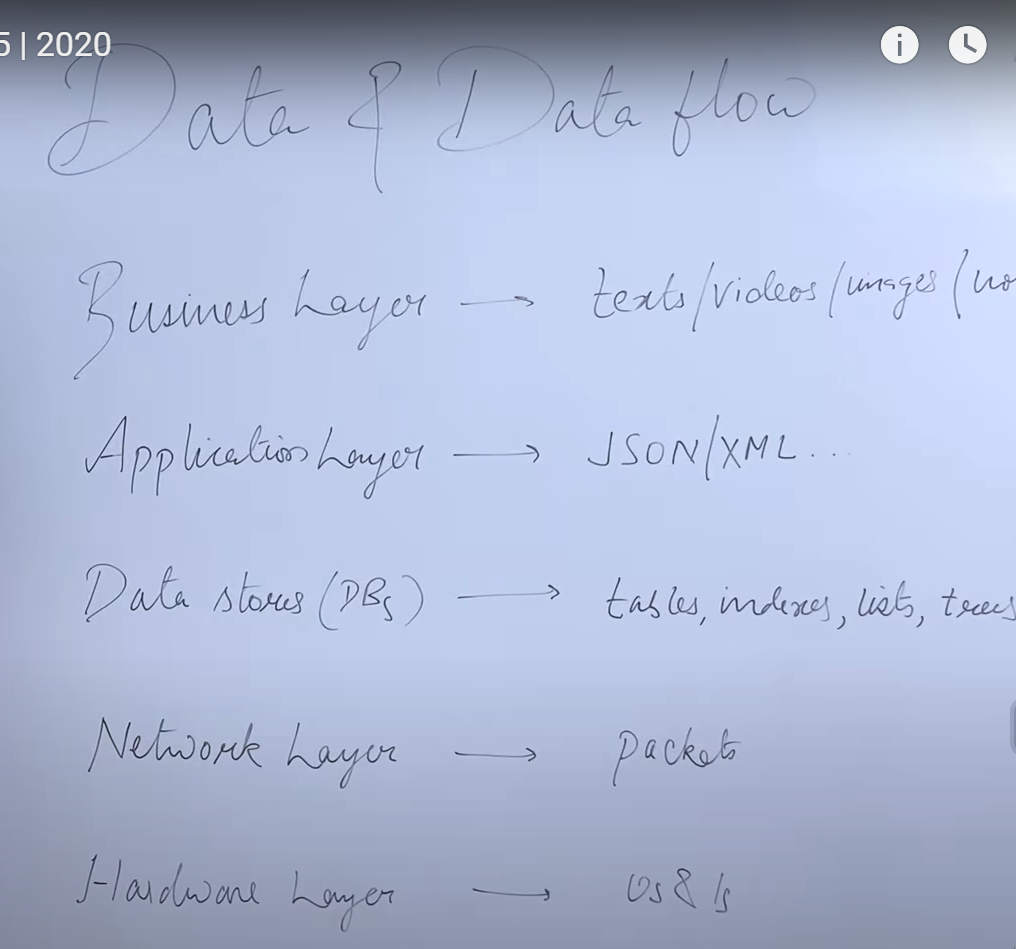 5 | 2020
Data & Data flow
Business Layer → texts/videos/images/
Application Layer → JSON/XML...
Data stores (DBs) → tables, indexes, lists, trees
Network Layer → packets
Hardware Layer → 0s & 1s